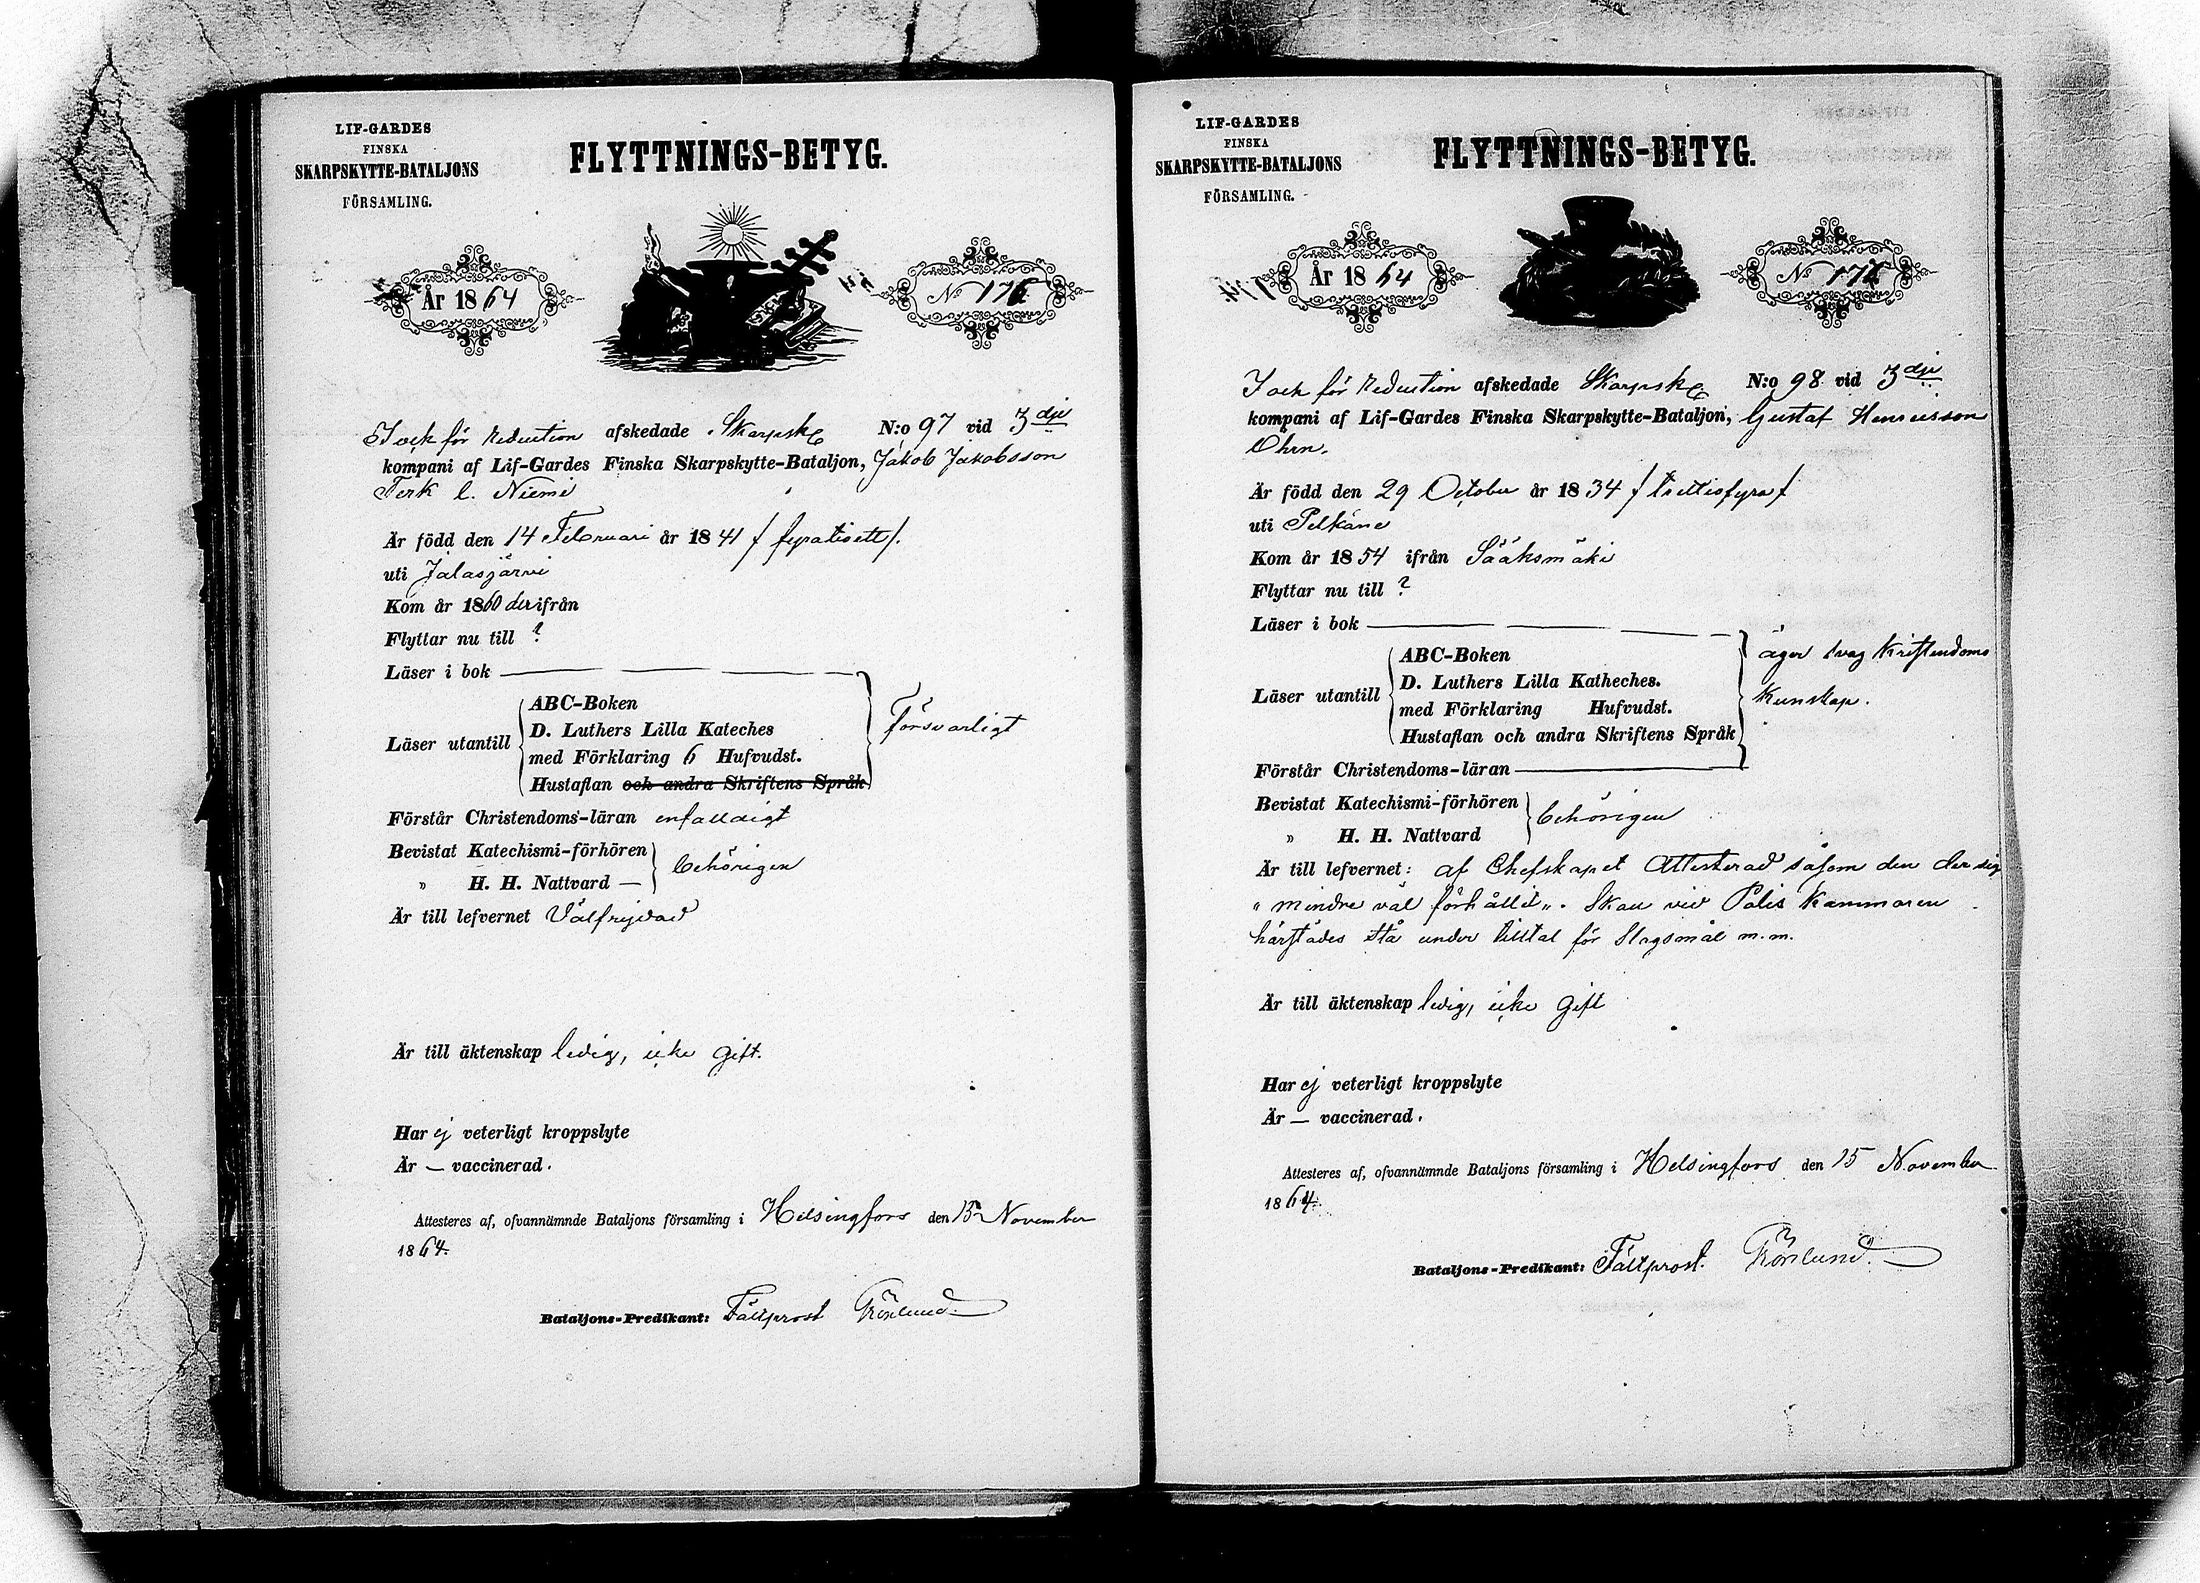 LIF-GARDES
FINSKA
SKARPSKYTTE-BATALJONS
FÖRSAMLING.
FLYTTNINGS-BETYG.
År 1864
No 176
och för Reduction afskedade Skarpsk N:o 97 vid 3dje
kompani af Lif-Gardes Finska Skarpskytte-Bataljon, Jakob Jakobsson
Terk l. Niemi
Är född den 14 Februari år 1841 / fyratioett /.
uti Jalasjärvi
Kom år 1860 derifrån
Flyttar nu till ?
Läser i bok
Läser utantill
ABC-Boken
D. Luthers Lilla Kateches
med Förklaring 6 Hufvudst.
Hustaflan och andra Skriftens Språk
Försvarligt
Förstår Christendoms-läran enfaldigt
Bevistat Katechismi-förhören
" H. H. Nattvard —
behörigen
Är till lefvernet Välfrejdad
Är till äktenskap ledig, icke gift.
Har ej veterligt kroppslyte
Är — vaccinerad.
Attesteres af, ofvannämnde Bataljons församling i Helsingfors den 15 November
1864.
Bataljons-Predikant: Fältprost Grönlund
LIF-GARDES
FINSKA
SKARPSKYTTE-BATALJONS
FÖRSAMLING.
FLYTTNINGS-BETYG.
År 1864
No 176
och för Reduction afskedade Skarpsk N:o 98 vid 3dje
kompani af Lif-Gardes Finska Skarpskytte-Bataljon, Gustaf Henricsson
Ohrn.
Är född den 29 October år 1834 / trettiofyra /
uti Pelkäne
Kom år 1854 ifrån Sääksmäki
Flyttar nu till ?
Läser i bok
Läser utantill
ABC-Boken
D. Luthers Lilla Katheches.
med Förklaring Hufvudst.
Hustaflan och andra Skriftens Språk
äger svag Kristendoms
Kunskap.
Förstår Christendoms-läran
Bevistat Katechismi-förhören
" H. H. Nattvard
behörigen
Är till lefvernet: af Chefskapet Attesterad såsom den der sig
"mindre väl förhållit". Skall vid Polis Kammaren
härstädes stå under tilltal för Slagsmål m.m.
Är till äktenskap ledig, icke gift
Har ej veterligt kroppslyte
Är — vaccinerad.
Attesteres af, ofvannämnde Bataljons församling i Helsingfors den 15 November
1864.
Bataljons-Predikant: Fältprost. Grönlund.